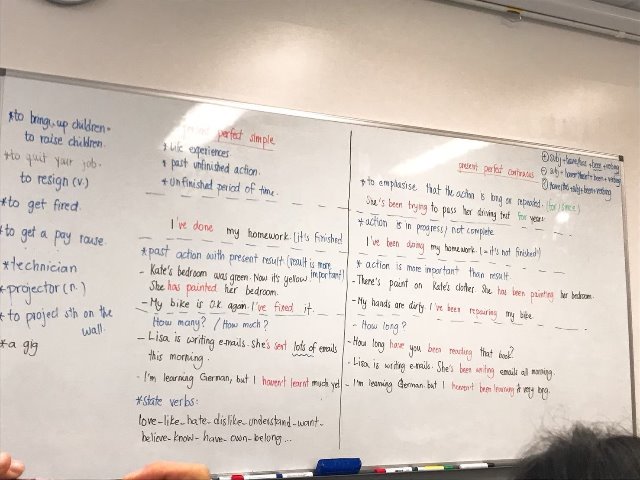 *to bring up children=
to raise children.
*to quit your job.
to resign (v.)
*to get fired.
*to get a pay rause.
*technician
*projector (n.)
*to project sth on the
wall.
*a gig
present perfect simple
*life experiences
*past unfinished action.
*unfinished period of time.
I've done my homework. (it's finished)
*past action with present result (result is more
important)
- Kate's bedroom was green. Now it's yellow.
She has painted her bedroom.
- My bike is O.K. again. I've fixed it.
How many? / How much?
- Lisa is writing emails. She's sent lots of emails
this morning.
- I'm learning German, but I haven't learnt much yet
*state verbs:
love-like-hate-dislike-understand-want-
believe-know-have-own-belong...
present perfect continuous
+ subj + have/has + been + verbing
- subj + haven't/hasn't + been + verbing
? have/has + subj + been + verbing
*to emphasise that the action is long or repeated. (for/since)
She's been trying to pass her driving test for years.
*action is in progress / not complete
I've been doing my homework. (= it's not finished)
*action is more important than result
- There's paint on Kate's clothes. She has been painting her bedroom.
- My hands are dirty. I've been repairing my bike.
- How long?
- How long have you been reading that book?
- Lisa is writing emails. She's been writing emails all morning.
- I'm learning German, but I haven't been learning very long.